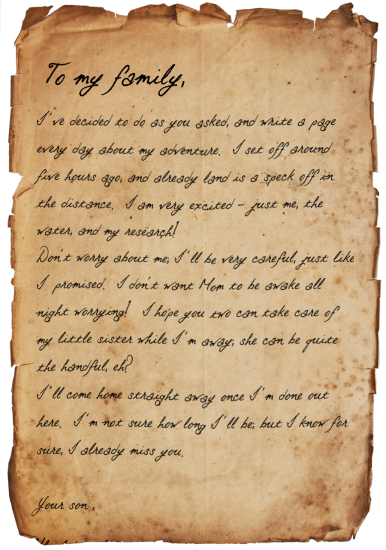 To my family,
I've decided to do as you asked, and write a page
every day about my adventure. I set off around
five hours ago, and already land is a speck off in
the distance. I am very excited - just me, the
water, and my research!
Don't worry about me, I'll be very careful, just like
I promised. I don't want Mom to be awake all
night worrying! I hope you two can take care of
my little sister while I'm away, she can be quite
the handful, eh?
I'll come home straight away once I'm done out
here. I'm not sure how long I'll be, but I know for
sure, I already miss you.
Your son,